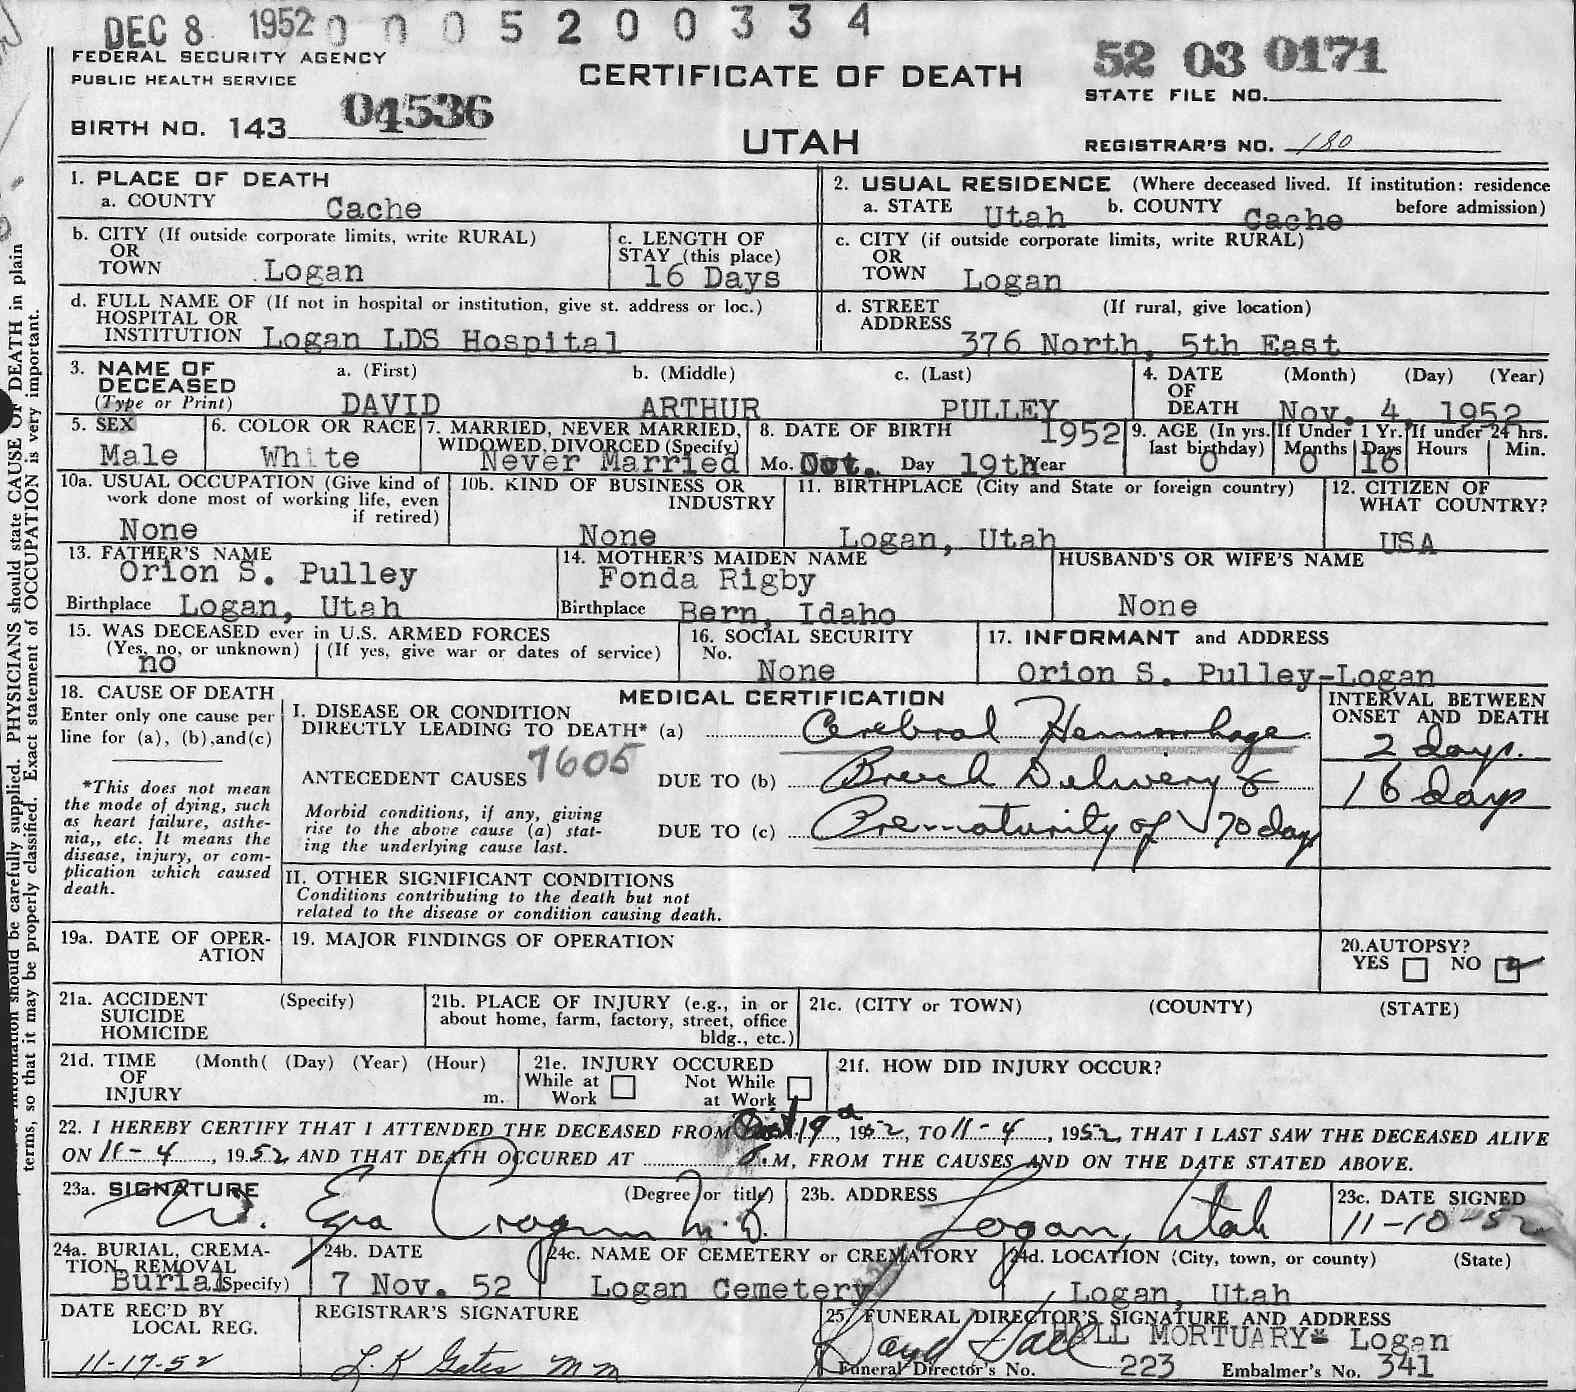 DEC 8 1952 0 0 0 5 2 0 0 3 3 4
FEDERAL SECURITY AGENCY
PUBLIC HEALTH SERVICE
CERTIFICATE OF DEATH
52 03 0171
STATE FILE NO.
BIRTH NO. 143 04536
UTAH
REGISTRAR'S NO. 180
1. PLACE OF DEATH
a. COUNTY Cache
2. USUAL RESIDENCE (Where deceased lived. If institution: residence
a. STATE Utah b. COUNTY Cache before admission)
b. CITY (If outside corporate limits, write RURAL)
OR
TOWN Logan
c. LENGTH OF
STAY (this place)
16 Days
c. CITY (if outside corporate limits, write RURAL)
OR
TOWN Logan
d. FULL NAME OF (If not in hospital or institution, give st. address or loc.)
HOSPITAL OR
INSTITUTION Logan LDS Hospital
d. STREET (If rural, give location)
ADDRESS 376 North, 5th East
3. NAME OF a. (First) b. (Middle) c. (Last)
DECEASED
(Type or Print) DAVID ARTHUR PULLEY
4. DATE (Month) (Day) (Year)
OF
DEATH Nov. 4, 1952
5. SEX
Male
6. COLOR OR RACE
White
7. MARRIED, NEVER MARRIED,
WIDOWED, DIVORCED (Specify)
Never Married
8. DATE OF BIRTH 1952
Mo. Oct. Day 19th Year
9. AGE (In yrs. last birthday) 0
If Under 1 Yr.
Months 0 Days 16
If under 24 hrs.
Hours Min.
10a. USUAL OCCUPATION (Give kind of
work done most of working life, even
if retired)
None
10b. KIND OF BUSINESS OR
INDUSTRY
None
11. BIRTHPLACE (City and State or foreign country)
Logan, Utah
12. CITIZEN OF
WHAT COUNTRY?
USA
13. FATHER'S NAME
Orion S. Pulley
Birthplace Logan, Utah
14. MOTHER'S MAIDEN NAME
Fonda Rigby
Birthplace Bern, Idaho
HUSBAND'S OR WIFE'S NAME
None
15. WAS DECEASED ever in U.S. ARMED FORCES
(Yes, no, or unknown) (If yes, give war or dates of service)
no
16. SOCIAL SECURITY
No.
None
17. INFORMANT and ADDRESS
Orion S. Pulley-Logan
18. CAUSE OF DEATH
Enter only one cause per
line for (a), (b),and(c)
*This does not mean
the mode of dying, such
as heart failure, asthe-
nia,, etc. It means the
disease, injury, or com-
plication which caused
death.
MEDICAL CERTIFICATION
I. DISEASE OR CONDITION
DIRECTLY LEADING TO DEATH* (a) Cerebral Hemorrhage
7605
ANTECEDENT CAUSES DUE TO (b) Breech Delivery &
Morbid conditions, if any, giving
rise to the above cause (a) stat-
ing the underlying cause last.
DUE TO (c) Prematurity of 70 days
INTERVAL BETWEEN
ONSET AND DEATH
2 days.
16 days
II. OTHER SIGNIFICANT CONDITIONS
Conditions contributing to the death but not
related to the disease or condition causing death.
19a. DATE OF OPER-
ATION
19. MAJOR FINDINGS OF OPERATION
20. AUTOPSY?
YES NO
21a. ACCIDENT (Specify)
SUICIDE
HOMICIDE
21b. PLACE OF INJURY (e.g., in or
about home, farm, factory, street, office
bldg., etc.)
21c. (CITY or TOWN) (COUNTY) (STATE)
21d. TIME (Month( (Day) (Year) (Hour)
OF
INJURY m.
21e. INJURY OCCURED
While at Not While
Work at Work
21f. HOW DID INJURY OCCUR?
22. I HEREBY CERTIFY THAT I ATTENDED THE DECEASED FROM Oct 19, 1952, TO 11-4, 1952, THAT I LAST SAW THE DECEASED ALIVE
ON 11-4, 1952 AND THAT DEATH OCCURED AT .M, FROM THE CAUSES AND ON THE DATE STATED ABOVE.
23a. SIGNATURE (Degree or title)
W. Ezra Cragun M.D.
23b. ADDRESS
Logan, Utah
23c. DATE SIGNED
11-10-52
24a. BURIAL, CREMA-
TION, REMOVAL
Burial (Specify)
24b. DATE
7 Nov. 52
24c. NAME OF CEMETERY or CREMATORY
Logan Cemetery
24d. LOCATION (City, town, or county) (State)
Logan, Utah
DATE REC'D BY
LOCAL REG.
11-17-52
REGISTRAR'S SIGNATURE
L. K Gates MM
25. FUNERAL DIRECTOR'S SIGNATURE AND ADDRESS
HALL MORTUARY- Logan
Funeral Director's No. 223 Embalmer's No. 341
information should be carefully supplied. PHYSICIANS should state CAUSE OF DEATH in plain
terms, so that it may be properly classified. Exact statement of OCCUPATION is very important.